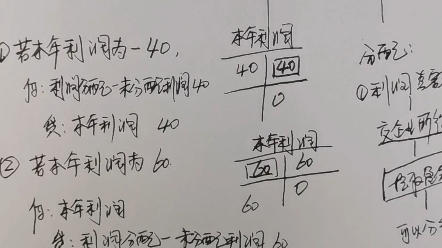 ① 若本年利润为-40,
借:利润分配-未分配利润40
贷:本年利润 40
本年利润
40 40
0
② 若本年利润为60
借:本年利润 60
贷:利润分配-未分配利润60
本年利润
60 60
0
分配:
①利润
交企业所
可以分